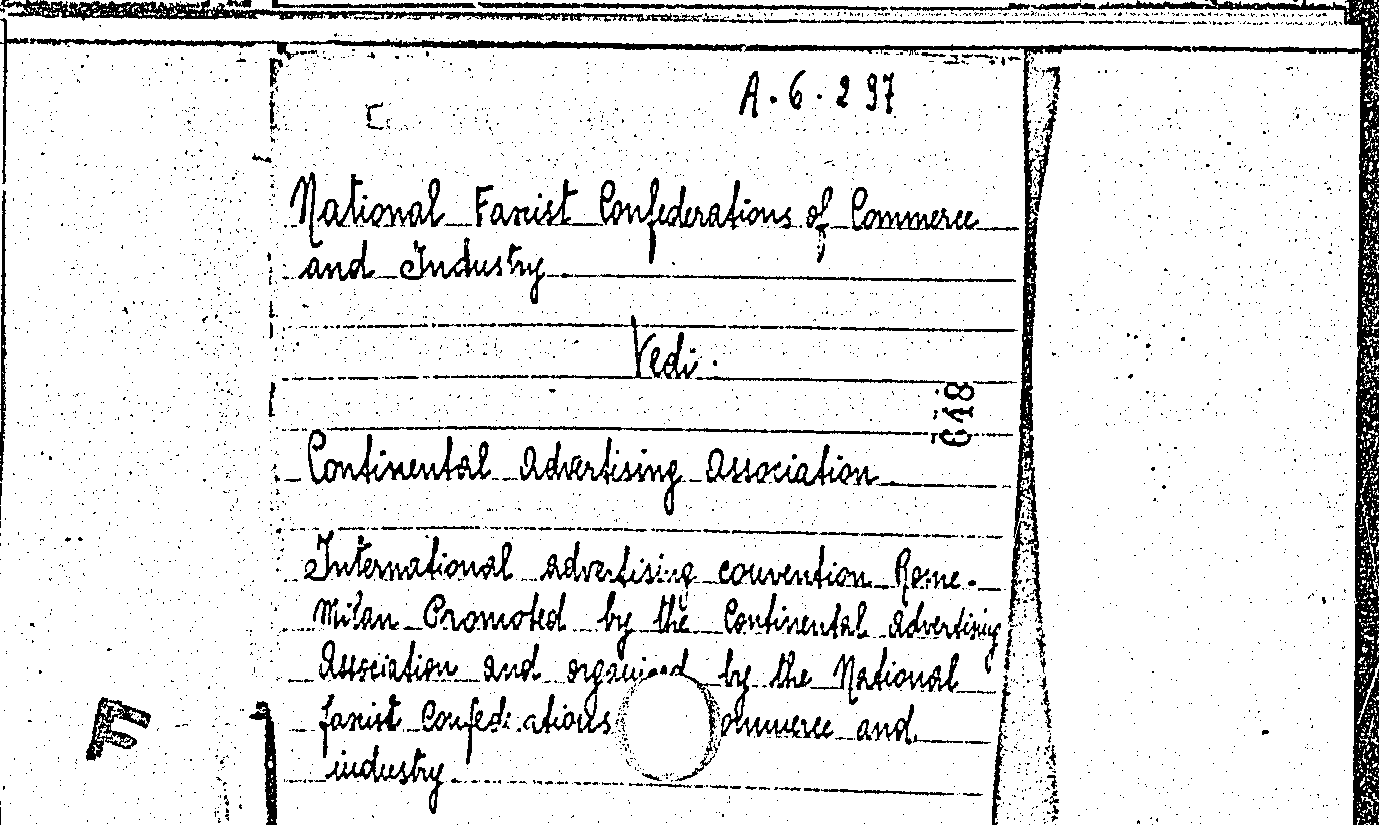 A.6.297
National Fascist Confederations of Commerce
and Industry
Vedi.
648
Continental Advertising Association
International advertising convention Rome-
Milan Promoted by the Continental Advertising
Association and organised by the National
fascist Confederations ommerce and
industry
F